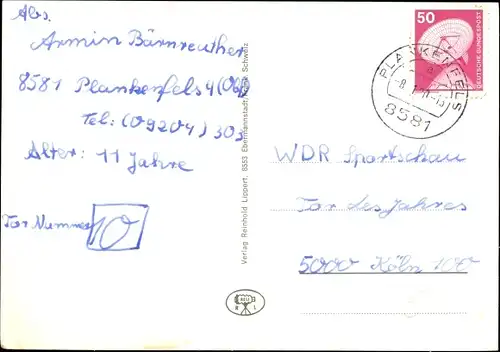 Abs.
Armin Bärnreuther
8581 Plankenfels 4 (Ofr)
Tel: (09204) 303
Alter: 11 Jahre
Tor Nummer 10
Verlag Reinhold Lippert, 8553 Ebermannstadt, Schweiz
50
DEUTSCHE BUNDESPOST
PLANKENFELS
8581
WDR Sportschau
Tor des Jahres
5000 Köln 100
R L